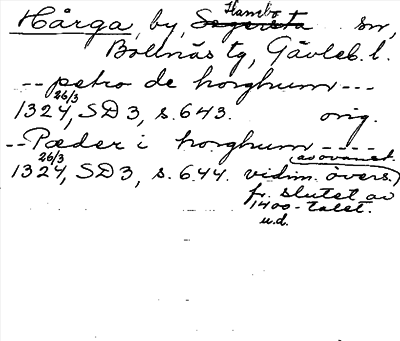 Hårga, by, Segersta Hanebo sn,
Bollnäs tg, Gävleb. l.
-- petro de horghum ---
1324 26/3, SD 3, s. 643. orig.
-- Pæder i horghum ----
1324 26/3, SD 3, s. 644. vidim. övers. (av ovanst.)
fr. slutet av
1400-talet.
u.d.